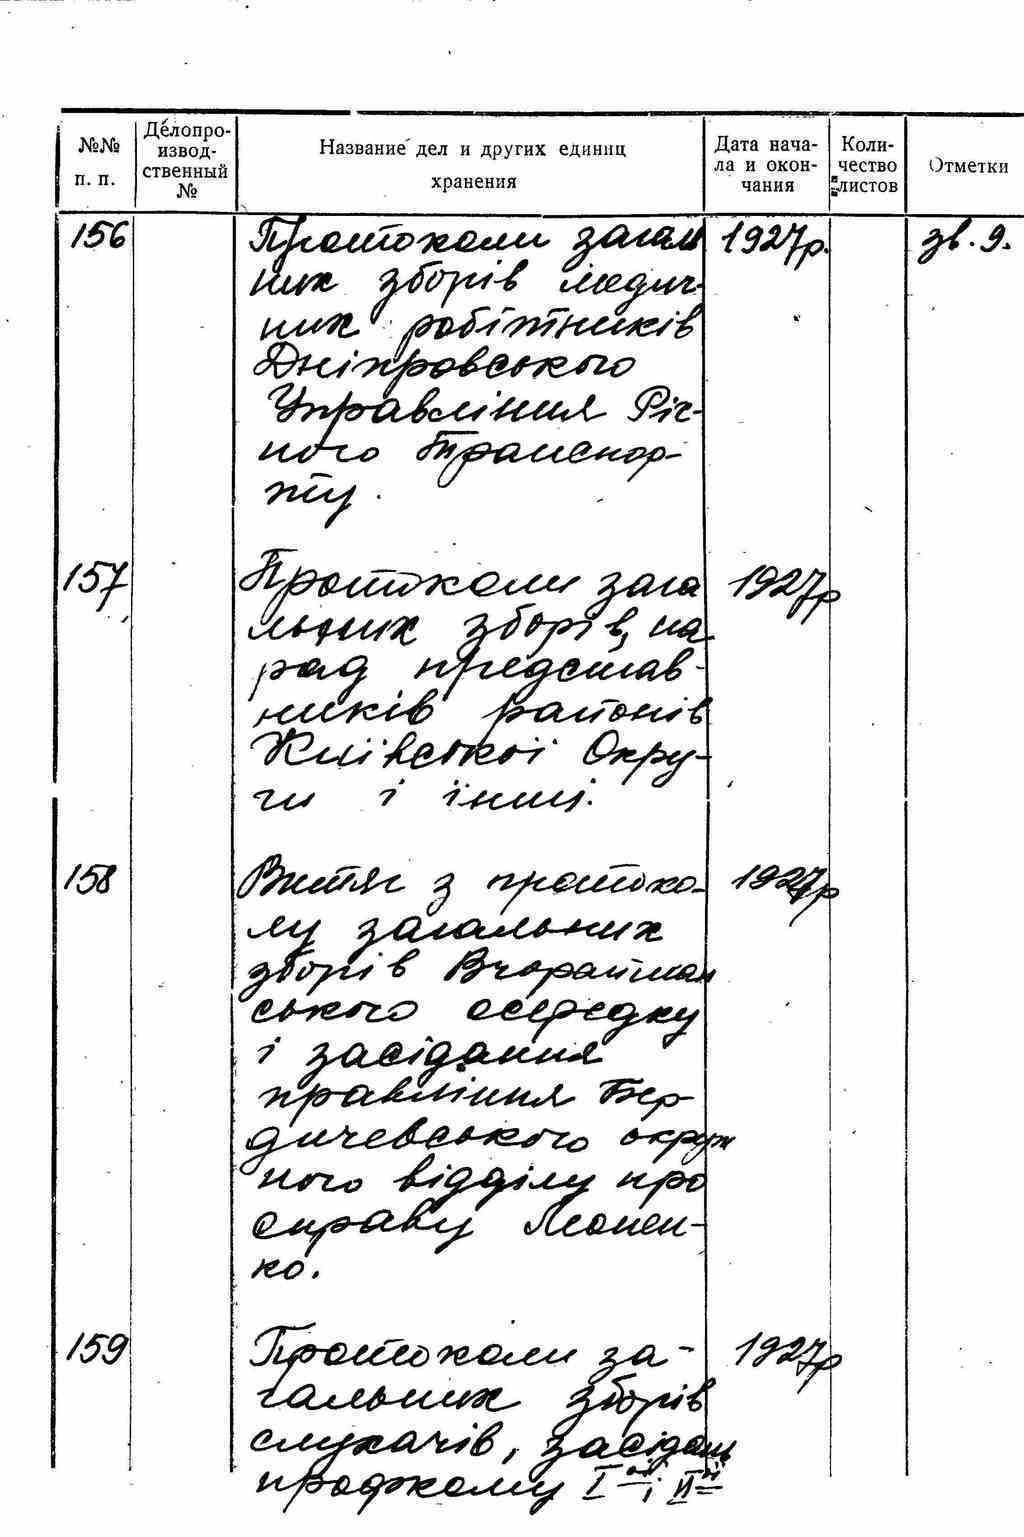 №№ п. п.
Делопро-
извод-
ственный
№
Название дел и других единиц
хранения
Дата нача-
ла и окон-
чания
Коли-
чество
листов
Отметки
156 Протоколи загаль 1927р. зв. 9.
них зборів медич-
них робітників
Дніпровського
Управління Річ-
ного Транспор-
ту.
157 Протоколи зага 1927р
льних зборів, на
рад представ-
ників районів
Київської Окру-
ги і інші.
158 Витяг з протоко- 1927р
лу загальних
зборів Вчорайшан
ського осередку
і засідання
правління Бер-
дичевського окруж
ного відділу про
справу Мопен-
ко.
159 Протоколи за- 1927р
гальних зборів
слухачів, засідань
профкому I-ої і II-ої